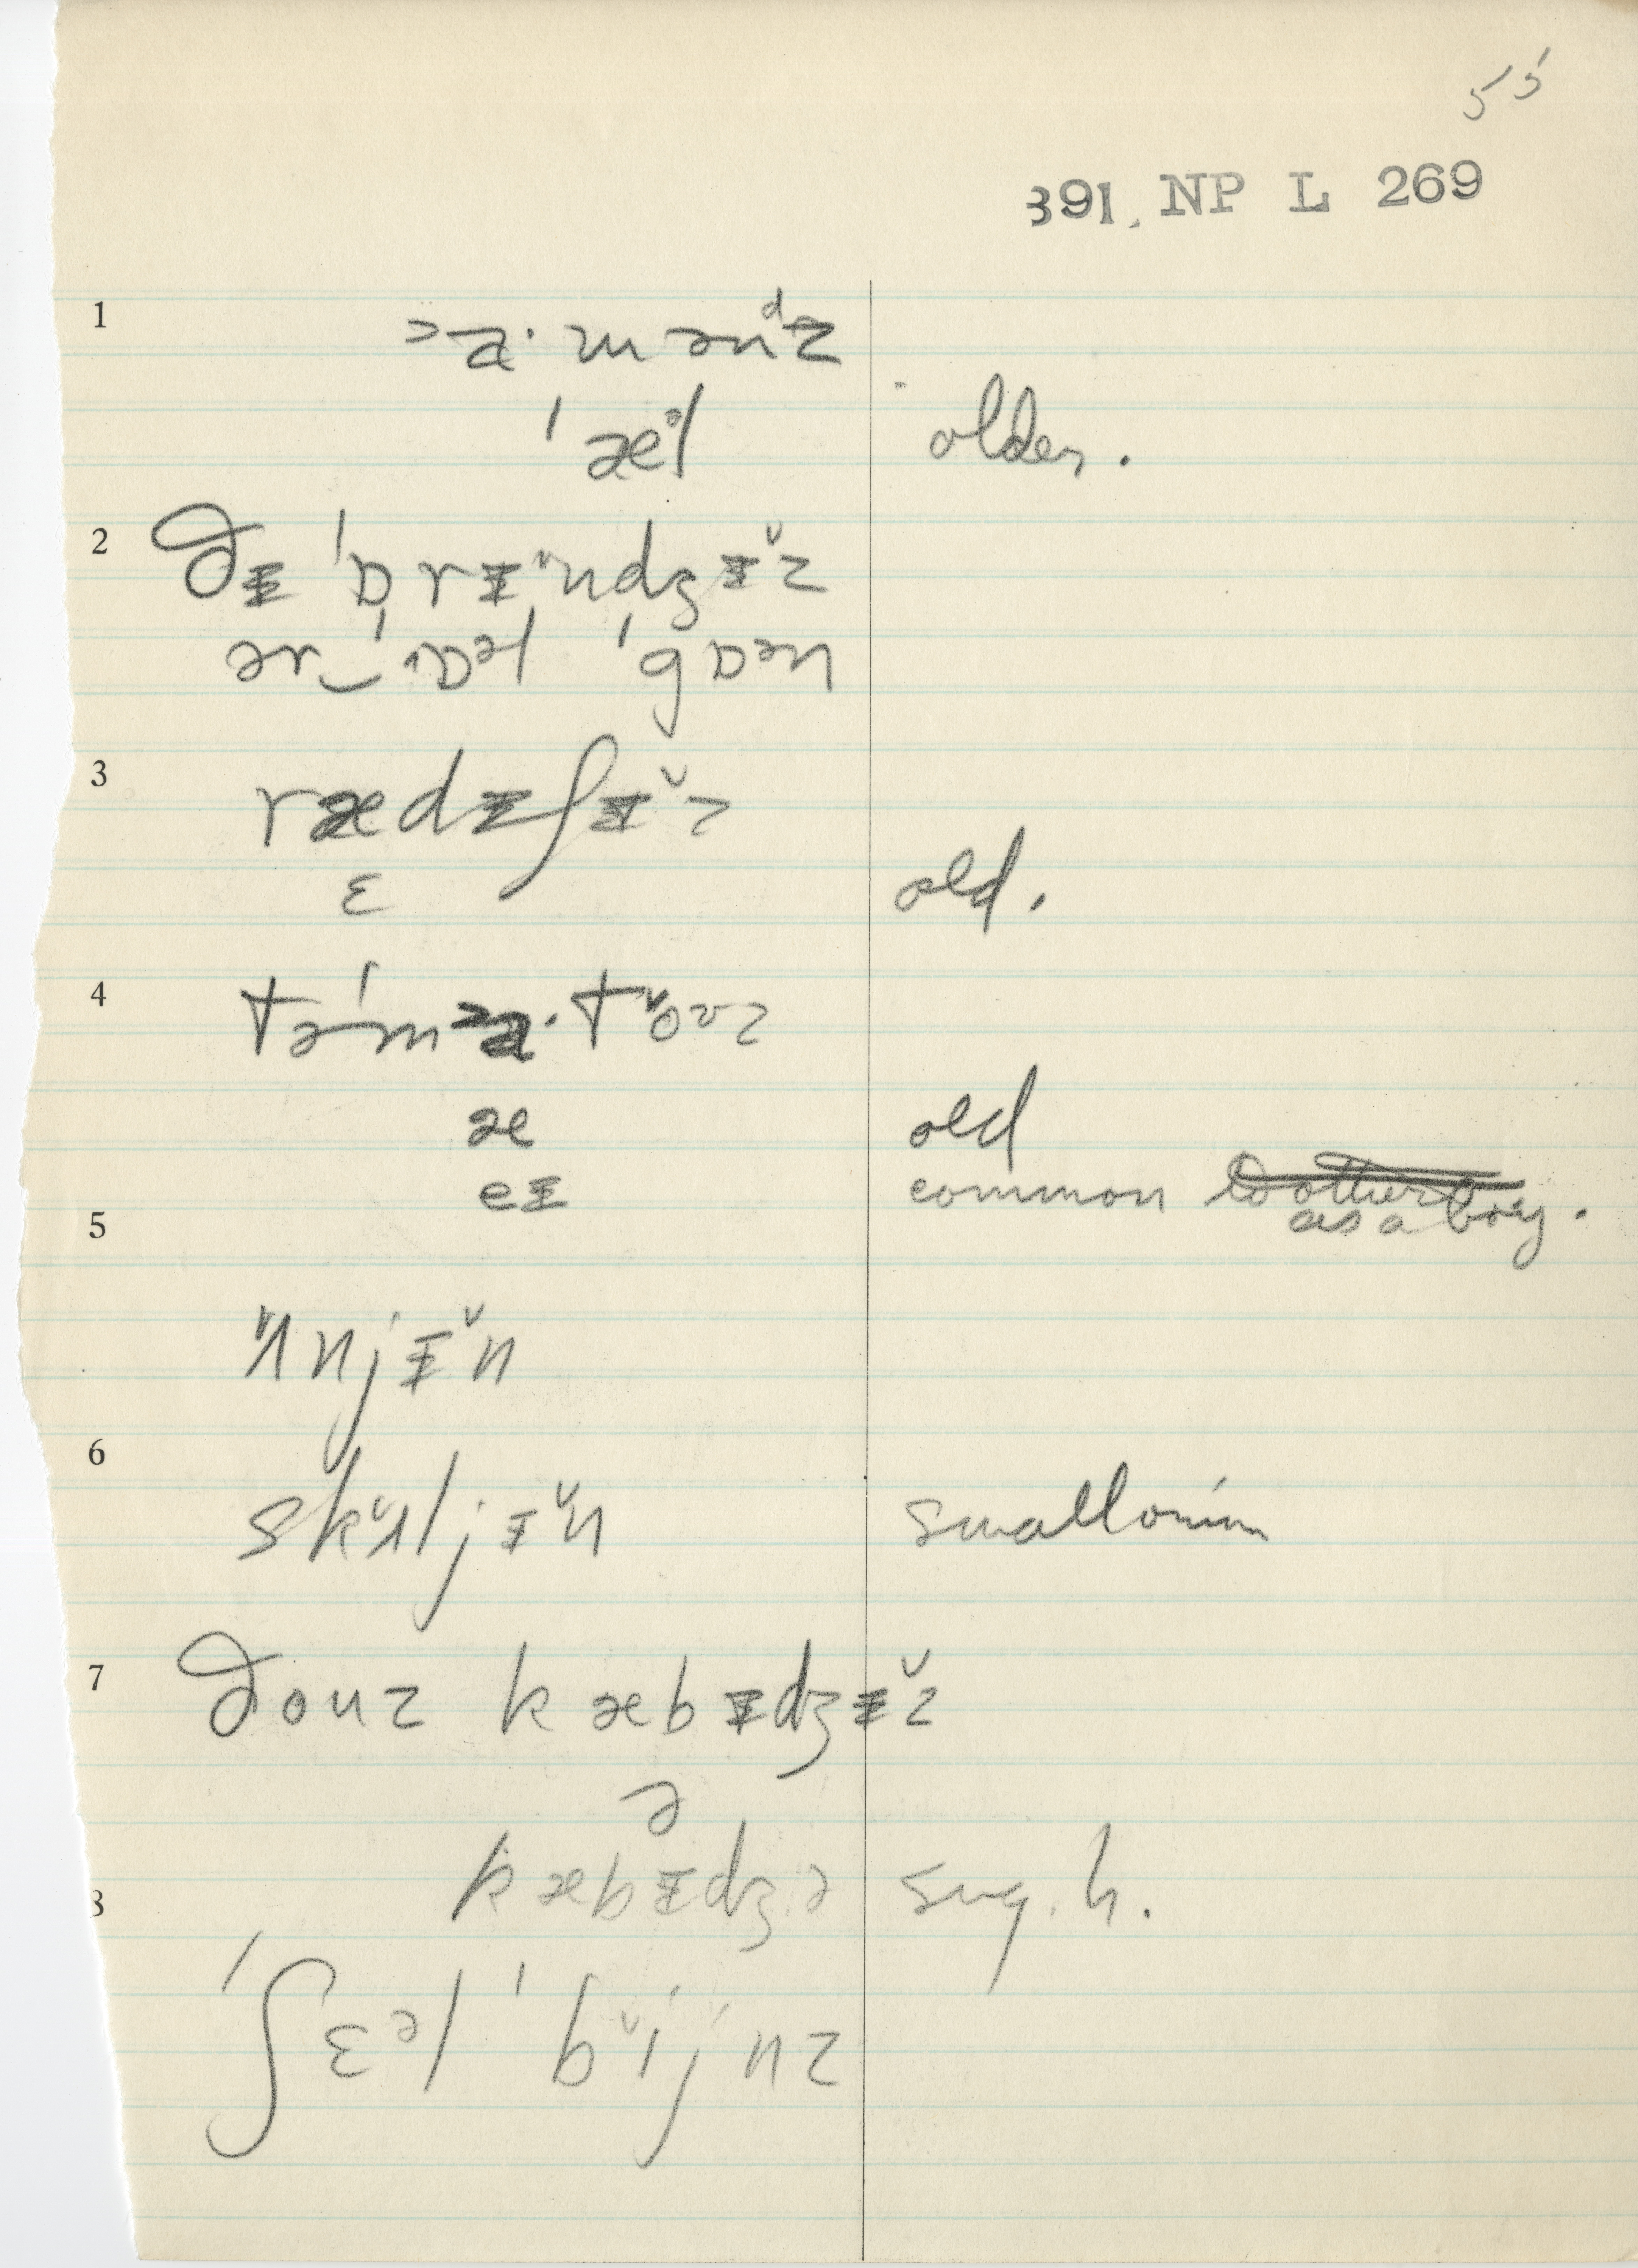 55
391. NP L 269
1
ᵊa·mənᵈz
ˈæᵊl older.
2
ðɪ ˈɒrɪ̆ndʒɪ̆z
ər‿ˈɒᵊl ˈgɒən
3
rædɪʃɪ̆z
ɛ old.
4
təˈmᵊa·tŏʊz
æ old
eɪ common to other
as a boy.
5
ʌ̆njɪ̆n
6
skʌ̆ljɪ̆n small onion
7
ðouz kæbɪdʒɪ̆z
ə
8
kæbɪdʒə sug. h.
ˈʃɛᵊl ˈbĭjnz